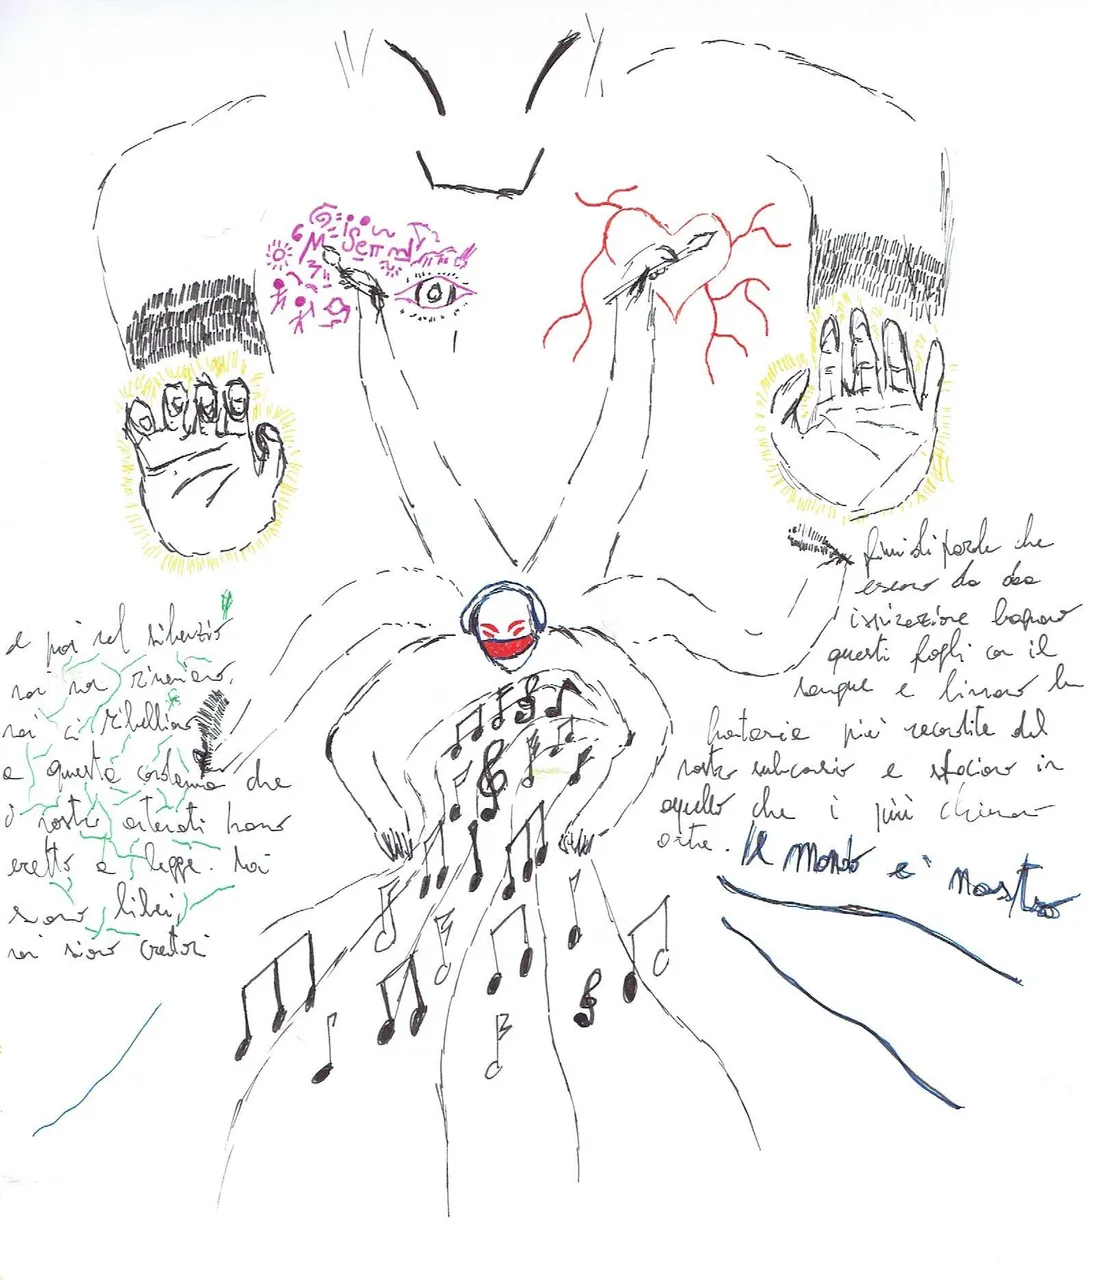 e poi nel silenzio
noi non
noi ci ribelliamo
a questa condanna che
i nostri antenati hanno
eretto a legge. Noi
siamo liberi,
noi siamo creatori
fiumi di parole che
escono da
ispirazione bagnano
questi fogli con il
sangue e
più recondite del
nostro subconscio e sfociano in
quello che i più chiamano
arte.
Il Mondo e' Nostro